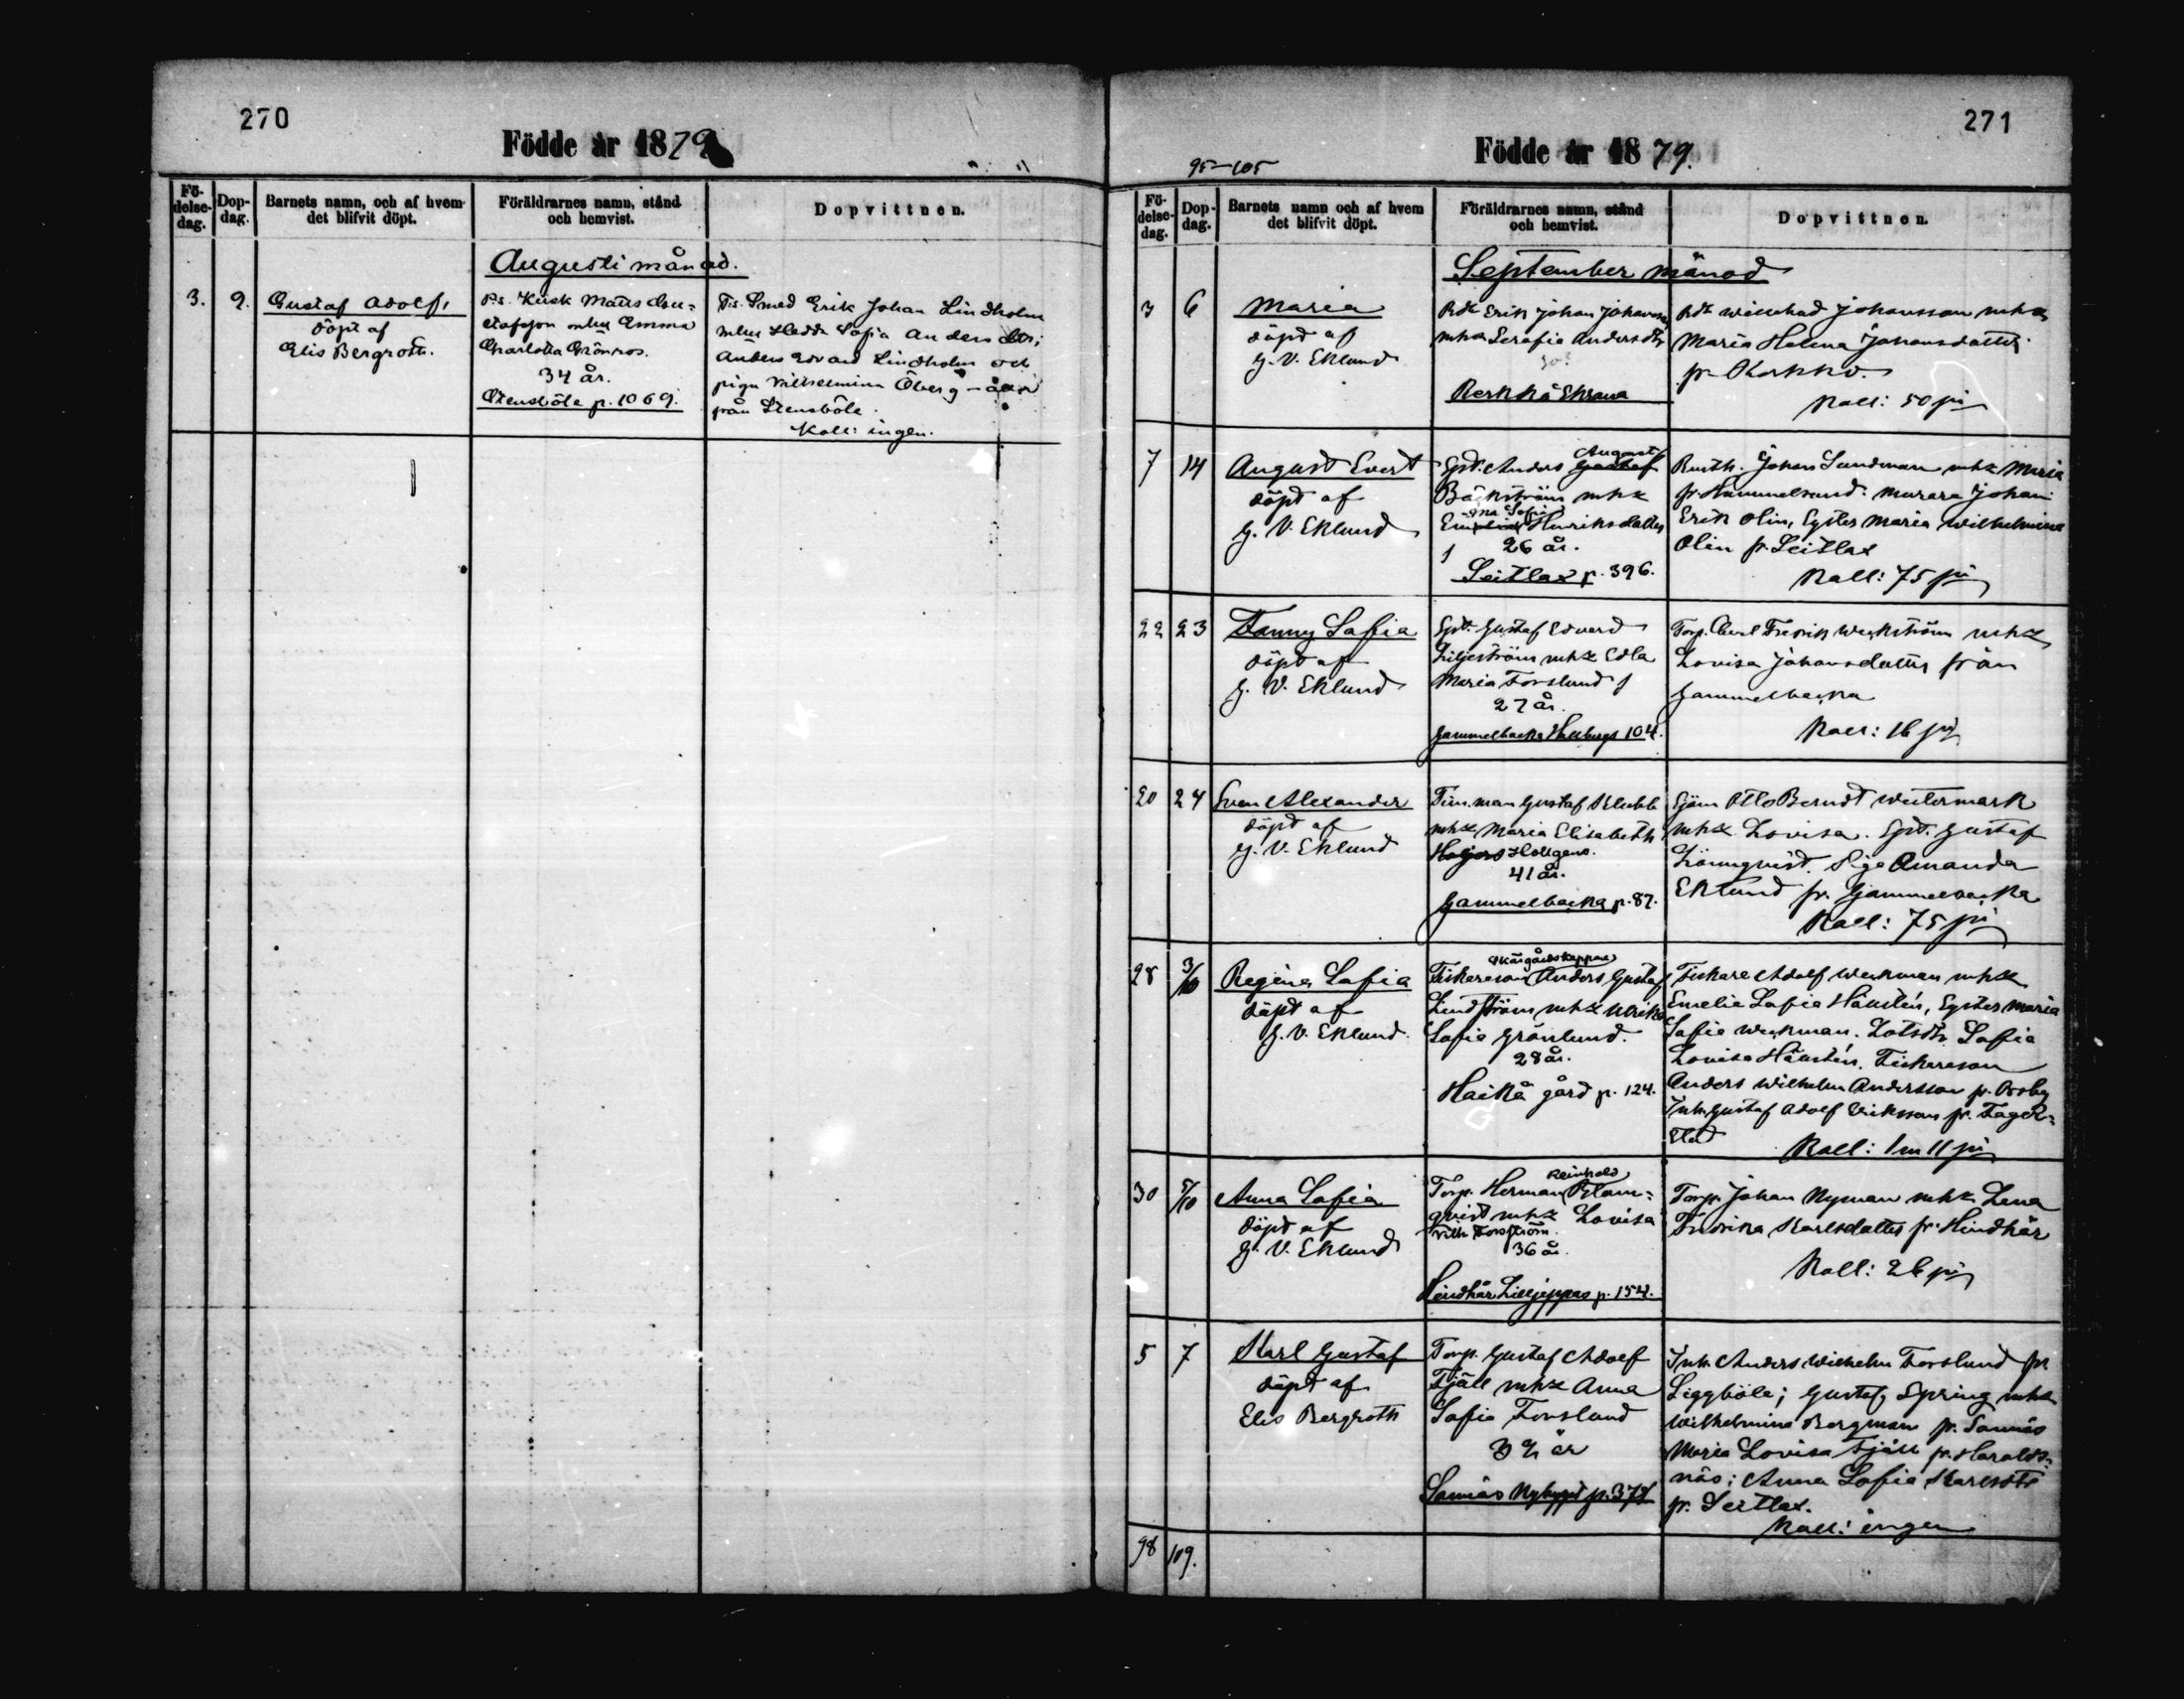 270
Födde år 1879
Fö-
delse-
dag.
Dop-
dag.
Barnets namn, och af hvem
det blifvit döpt.
Föräldrarnes namn, stånd
och hemvist.
Dopvittnen.
Augusti månad.
3. 9.
Gustaf Adolf,
döpt af
Elis Bergroth.
Kusk Matts Gu-
stafsson Emma
Charlotta Grönroos.
34 år.
Stensböle p. 1069.
Smed Erik Johan Lindholm
Hedda Sofia Anders dtr;
Anders Edvard Lindholm och
piga Vilhelmina Öberg - alla
från Stensböle.
Koll: ingen.
271
95-105
Födde år 1879.
Fö-
delse-
dag.
Dop-
dag.
Barnets namn och af hvem
det blifvit döpt.
Föräldrarnes namn, stånd
och hemvist.
Dopvittnen.
September månad
3 6
Maria
döpd af
G. V. Eklund
Erik Johan Johansson
mhu Serafia Andersdtr
Kerkkå Ekbana
Johansson mhu
Maria Helena Johansdotter
fr. Korkko.
Koll: 50 pi
7 14
August Evert
döpd af
G. V. Eklund
Anders Gustaf
August
Bäckström mhu
Sofia
Henriksdotter
26 år.
Seitlax p. 396.
Johan Sundman mhu Maria
fr. Hummelsund. Murare Johan
Erik Olin, Syster Maria Wilhelmina
Olin fr. Seitlax
Koll: 75 pi
22 23
Fanny Sofia
döpd af
G. V. Eklund
Gustaf Edvard
Liljeström mhu Edla
Maria Forslund
27 år.
Gammelbacka 104.
Torp. Carl Fredrik Weckström mhu
Lovisa Johansdotter från
Gammelbacka
Koll: 16 pi
20 24
Sven Alexander
döpd af
G. V. Eklund
Tim.man Gustaf Klubb
mhu Maria Elisabeth
Holgers.
41 år.
Gammelbacka p. 87.
Sjöm Otto Berndt Westermark
mhu Lovisa. Gustaf
Lönnqvist. Piga Amanda
Eklund fr. Gammelbacka
Koll: 75 pi
28 3/10
Regina Sofia
döpd af
G. V. Eklund.
Fiskareson Anders Gustaf
Lindström mhu Ulrika
Sofia Grönlund.
28 år.
Haikå gård p. 124.
Fiskare Adolf Weckman mhu
Emelia Sofia Hausten, Syster Maria
Sofia Weckman. Lotsdtr Sofia
Lovisa Hausten. Fiskareson
Anders Wilhelm Andersson fr. Orrby
Inh. Gustaf Adolf Eriksson fr. Tager-
stad
Koll: 1 m 11 pi
30 5/10
Anna Sofia
döpd af
G. V. Eklund
Reinhold
Torp. Herman Blom-
qvist mhu Lovisa
Vilh. Forsström.
36 år.
Hindhår Lilljeppas p. 154.
Torp. Johan Nyman mhu Lena
Fredrika Karlsdotter fr. Hindhår
Koll: 26 pi
5 7
Karl Gustaf
döpd af
Elis Bergroth
Torp. Gustaf Adolf
Fjäll mhu Anna
Sofia Forslund
32 år
Sannäs Nybygget
Inh. Anders Wilhelm Forslund fr
Siggböle; Gustaf Spring mhu
Wilhelmina Bergman fr. Sannäs
Maria Lovisa Fjäll fr. Haralds-
näs; Anna Sofia Karlsdtr
fr. Seitlax.
Koll: ingen
98 109.